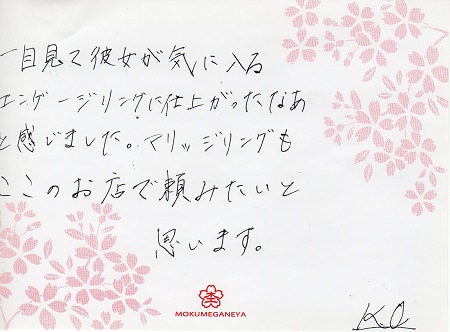 一目見て彼女が気に入る
エンゲージリングに仕上がったなあ
と感じました。マリッジリングも
ここのお店で頼みたいと
思います。
MOKUMEGANEYA
K.O